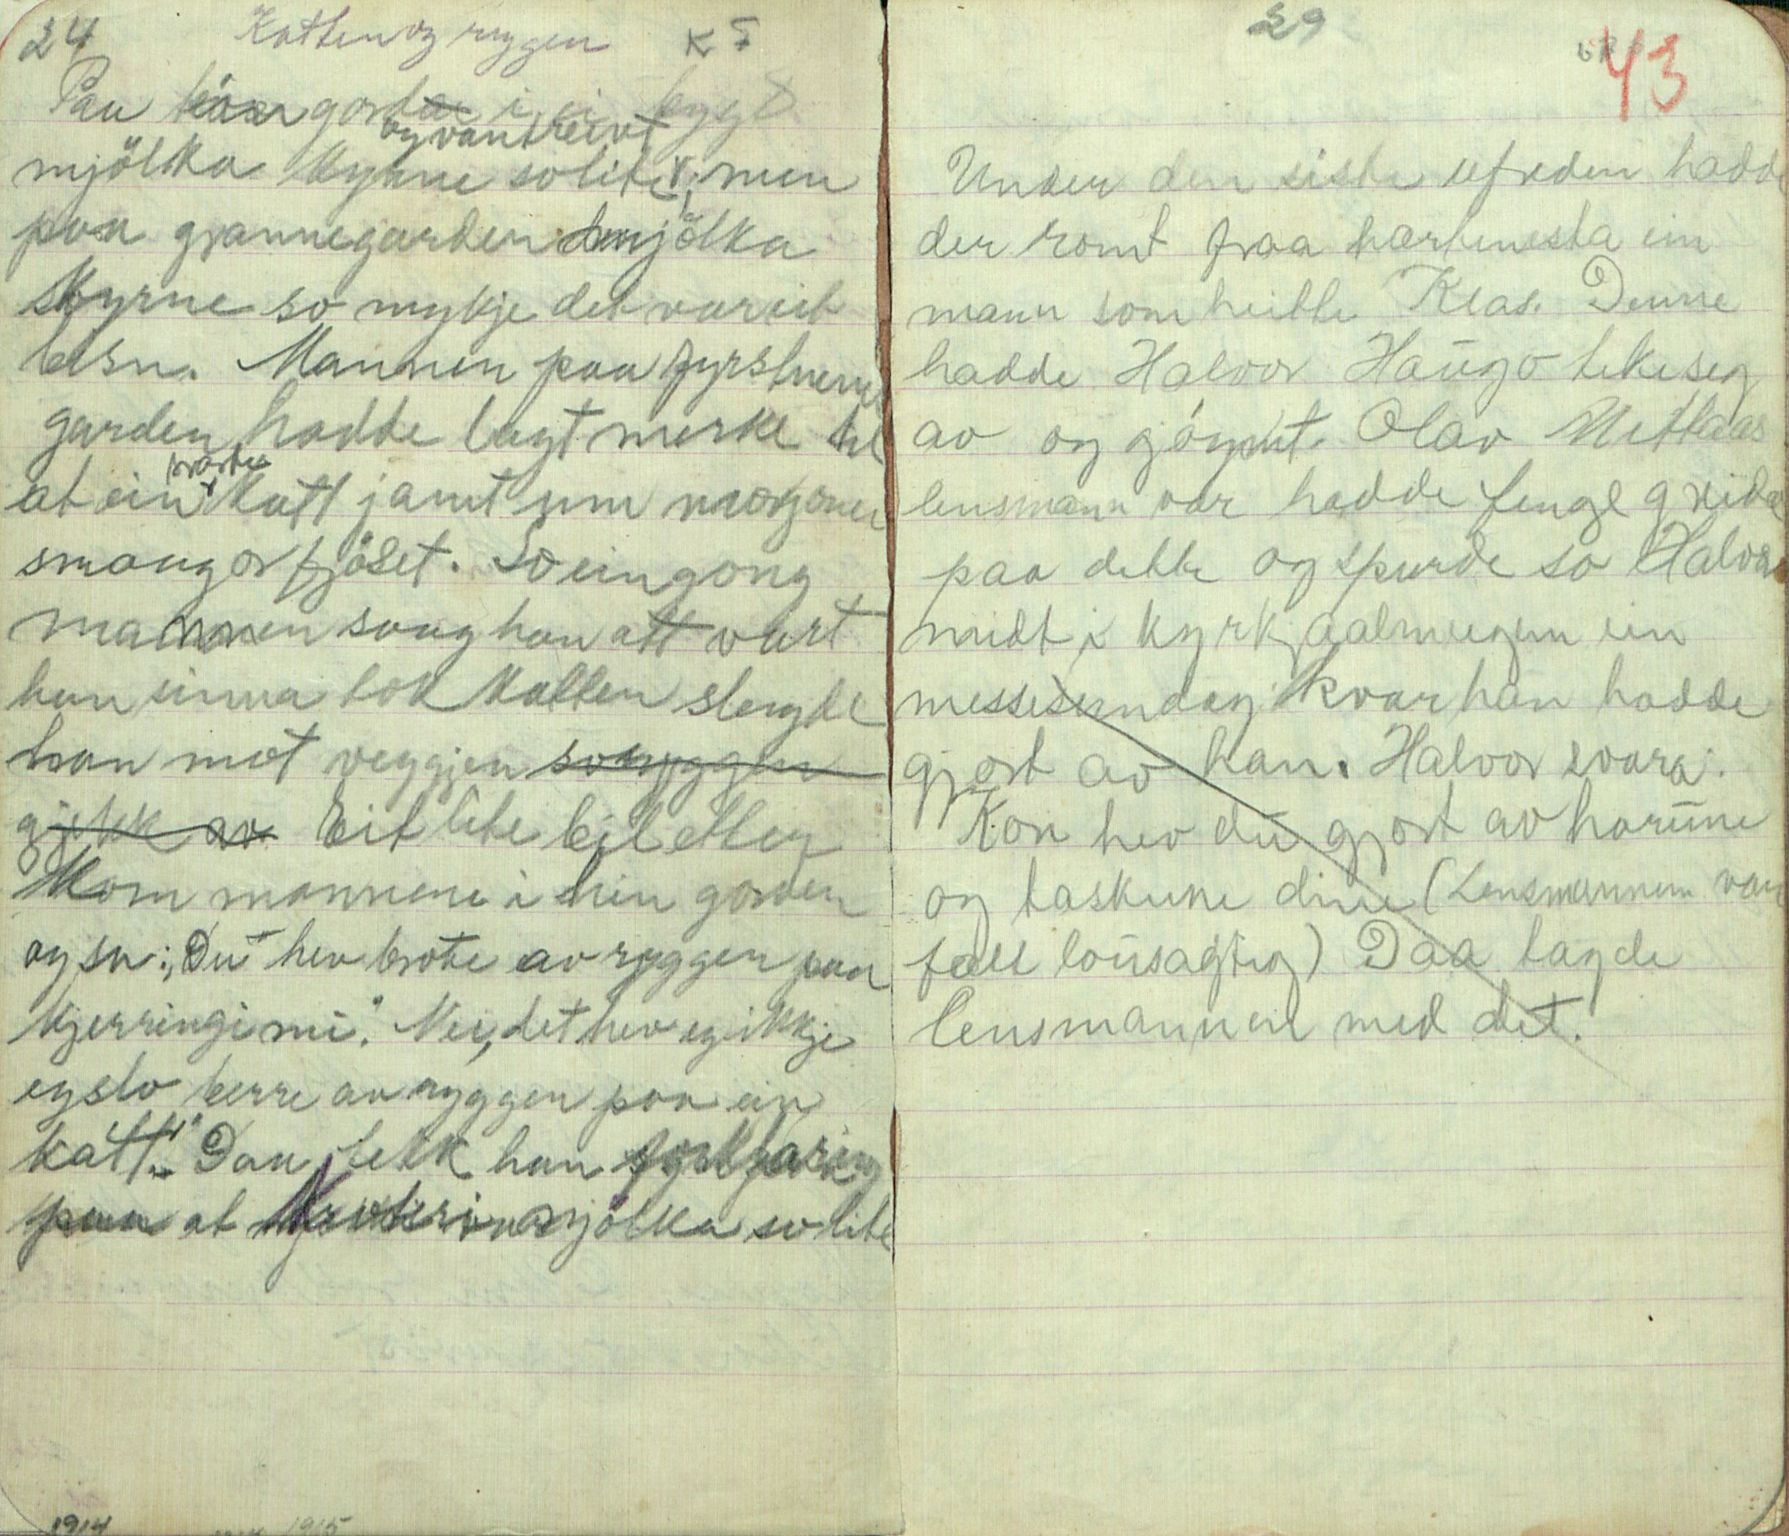 24 Katten og ryggen K F
Paa ein gard i ei bygd
og vantreivt
mjölka kyrne so lite, men
paa grannegarden mjölka
kyrne so mykje det var eit
Mannen paa fyrstnemnde
garden hadde lagt merke til
svarte
at ein katt jamt um morgonen
smaug or fjöset. So ein gong
mannen saag han att vart
han sinna tok katten slengde
han mot veggjen so ryggen
gjekk av Eit lite bil etter
kom mannen i hin garden
og sa: „Du hev brote av ryggen paa
kjerringi mi.“ Nei, det hev eg ikkje
eg slo berre av ryggen paa ein
katt.“ Daa fekk han forklaring
paa at mjölka so lite
1914 1915
29
43
Under den siste ufreden hadde
der romt fraa hærtenesta ein
mann som heitte Klas. Denne
hadde Halvor Haugo teke seg
av og göymt. Olav
lensmann var hadde fengl greida
paa dette og spurde so Halvor
midt i kyrkjaalmugen ein
messesundag kvar han hadde
gjort av han. Halvor svara:
Kor hev du gjort av horune
og taskune dine (Lensmannen var
fælt lousagtig) Daa tagde
lensmannen med det.